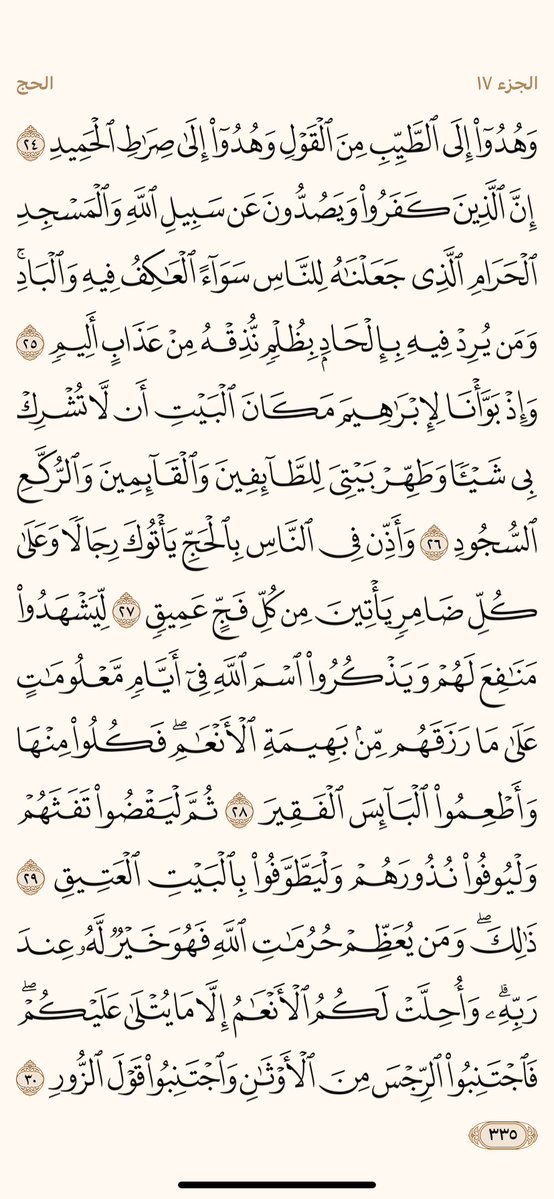 الجزء ١٧
الحج
وَهُدُوٓاْ إِلَى ٱلطَّيِّبِ مِنَ ٱلۡقَوۡلِ وَهُدُوٓاْ إِلَىٰ صِرَٰطِ ٱلۡحَمِيدِ ٢٤
إِنَّ ٱلَّذِينَ كَفَرُواْ وَيَصُدُّونَ عَن سَبِيلِ ٱللَّهِ وَٱلۡمَسۡجِدِ
ٱلۡحَرَامِ ٱلَّذِي جَعَلۡنَٰهُ لِلنَّاسِ سَوَآءً ٱلۡعَٰكِفُ فِيهِ وَٱلۡبَادِۚ
وَمَن يُرِدۡ فِيهِ بِإِلۡحَادِۭ بِظُلۡمٖ نُّذِقۡهُ مِنۡ عَذَابٍ أَلِيمٖ ٢٥
وَإِذۡ بَوَّأۡنَا لِإِبۡرَٰهِيمَ مَكَانَ ٱلۡبَيۡتِ أَن لَّا تُشۡرِكۡ
بِي شَيۡـٔٗا وَطَهِّرۡ بَيۡتِيَ لِلطَّآئِفِينَ وَٱلۡقَآئِمِينَ وَٱلرُّكَّعِ
ٱلسُّجُودِ ٢٦ وَأَذِّن فِي ٱلنَّاسِ بِٱلۡحَجِّ يَأۡتُوكَ رِجَالٗا وَعَلَىٰ
كُلِّ ضَامِرٖ يَأۡتِينَ مِن كُلِّ فَجٍّ عَمِيقٖ ٢٧ لِّيَشۡهَدُواْ
مَنَٰفِعَ لَهُمۡ وَيَذۡكُرُواْ ٱسۡمَ ٱللَّهِ فِيٓ أَيَّامٖ مَّعۡلُومَٰتٍ
عَلَىٰ مَا رَزَقَهُم مِّنۢ بَهِيمَةِ ٱلۡأَنۡعَٰمِۖ فَكُلُواْ مِنۡهَا
وَأَطۡعِمُواْ ٱلۡبَآئِسَ ٱلۡفَقِيرَ ٢٨ ثُمَّ لۡيَقۡضُواْ تَفَثَهُمۡ
وَلۡيُوفُواْ نُذُورَهُمۡ وَلۡيَطَّوَّفُواْ بِٱلۡبَيۡتِ ٱلۡعَتِيقِ ٢٩
ذَٰلِكَۖ وَمَن يُعَظِّمۡ حُرُمَٰتِ ٱللَّهِ فَهُوَ خَيۡرٞ لَّهُۥ عِندَ
رَبِّهِۦۗ وَأُحِلَّتۡ لَكُمُ ٱلۡأَنۡعَٰمُ إِلَّا مَا يُتۡلَىٰ عَلَيۡكُمۡۖ
فَٱجۡتَنِبُواْ ٱلرِّجۡسَ مِنَ ٱلۡأَوۡثَٰنِ وَٱجۡتَنِبُواْ قَوۡلَ ٱلزُّورِ ٣٠
٣٣٥